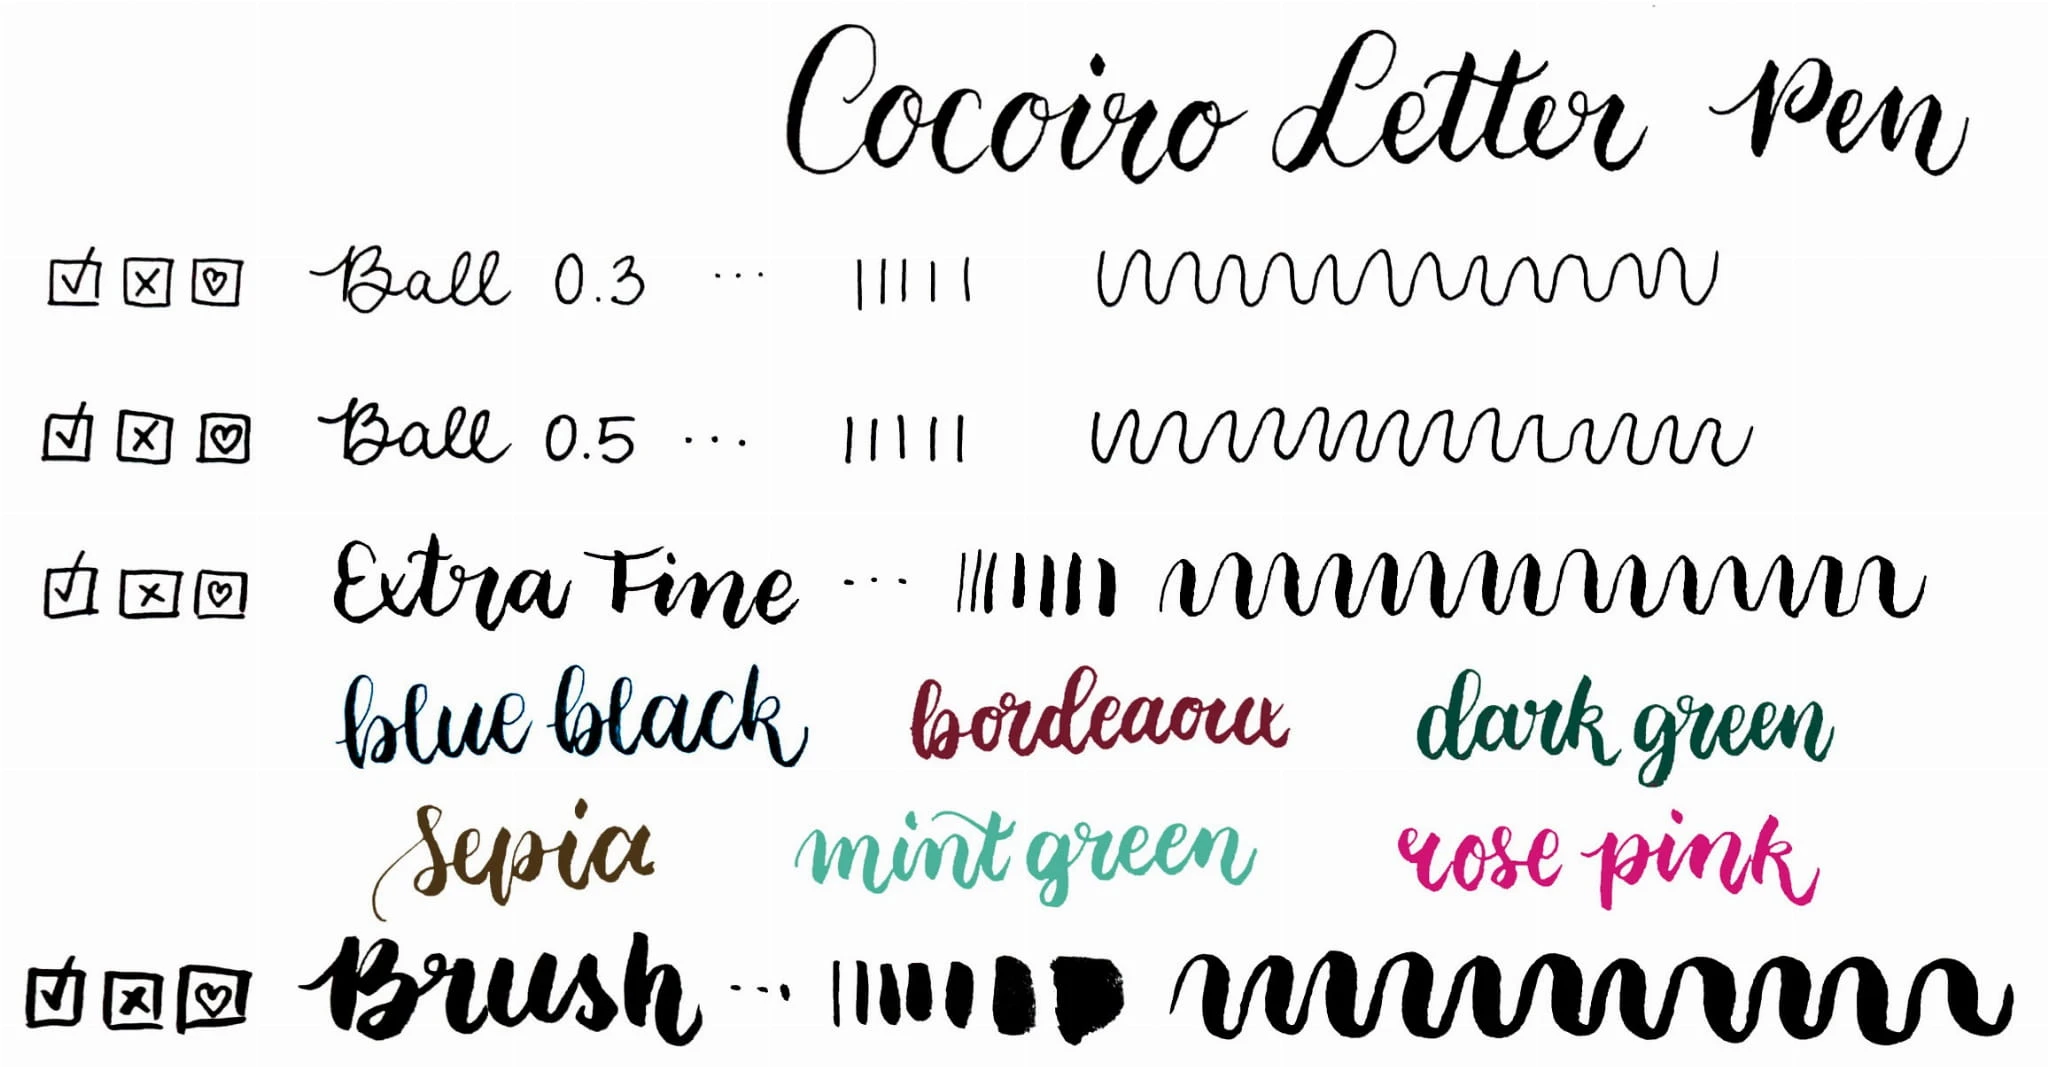 Cocoiro Letter Pen
Ball 0.3 ...
Ball 0.5 ...
Extra Fine ...
blue black bordeaoux dark green
Sepia mint green rose pink
Brush ...